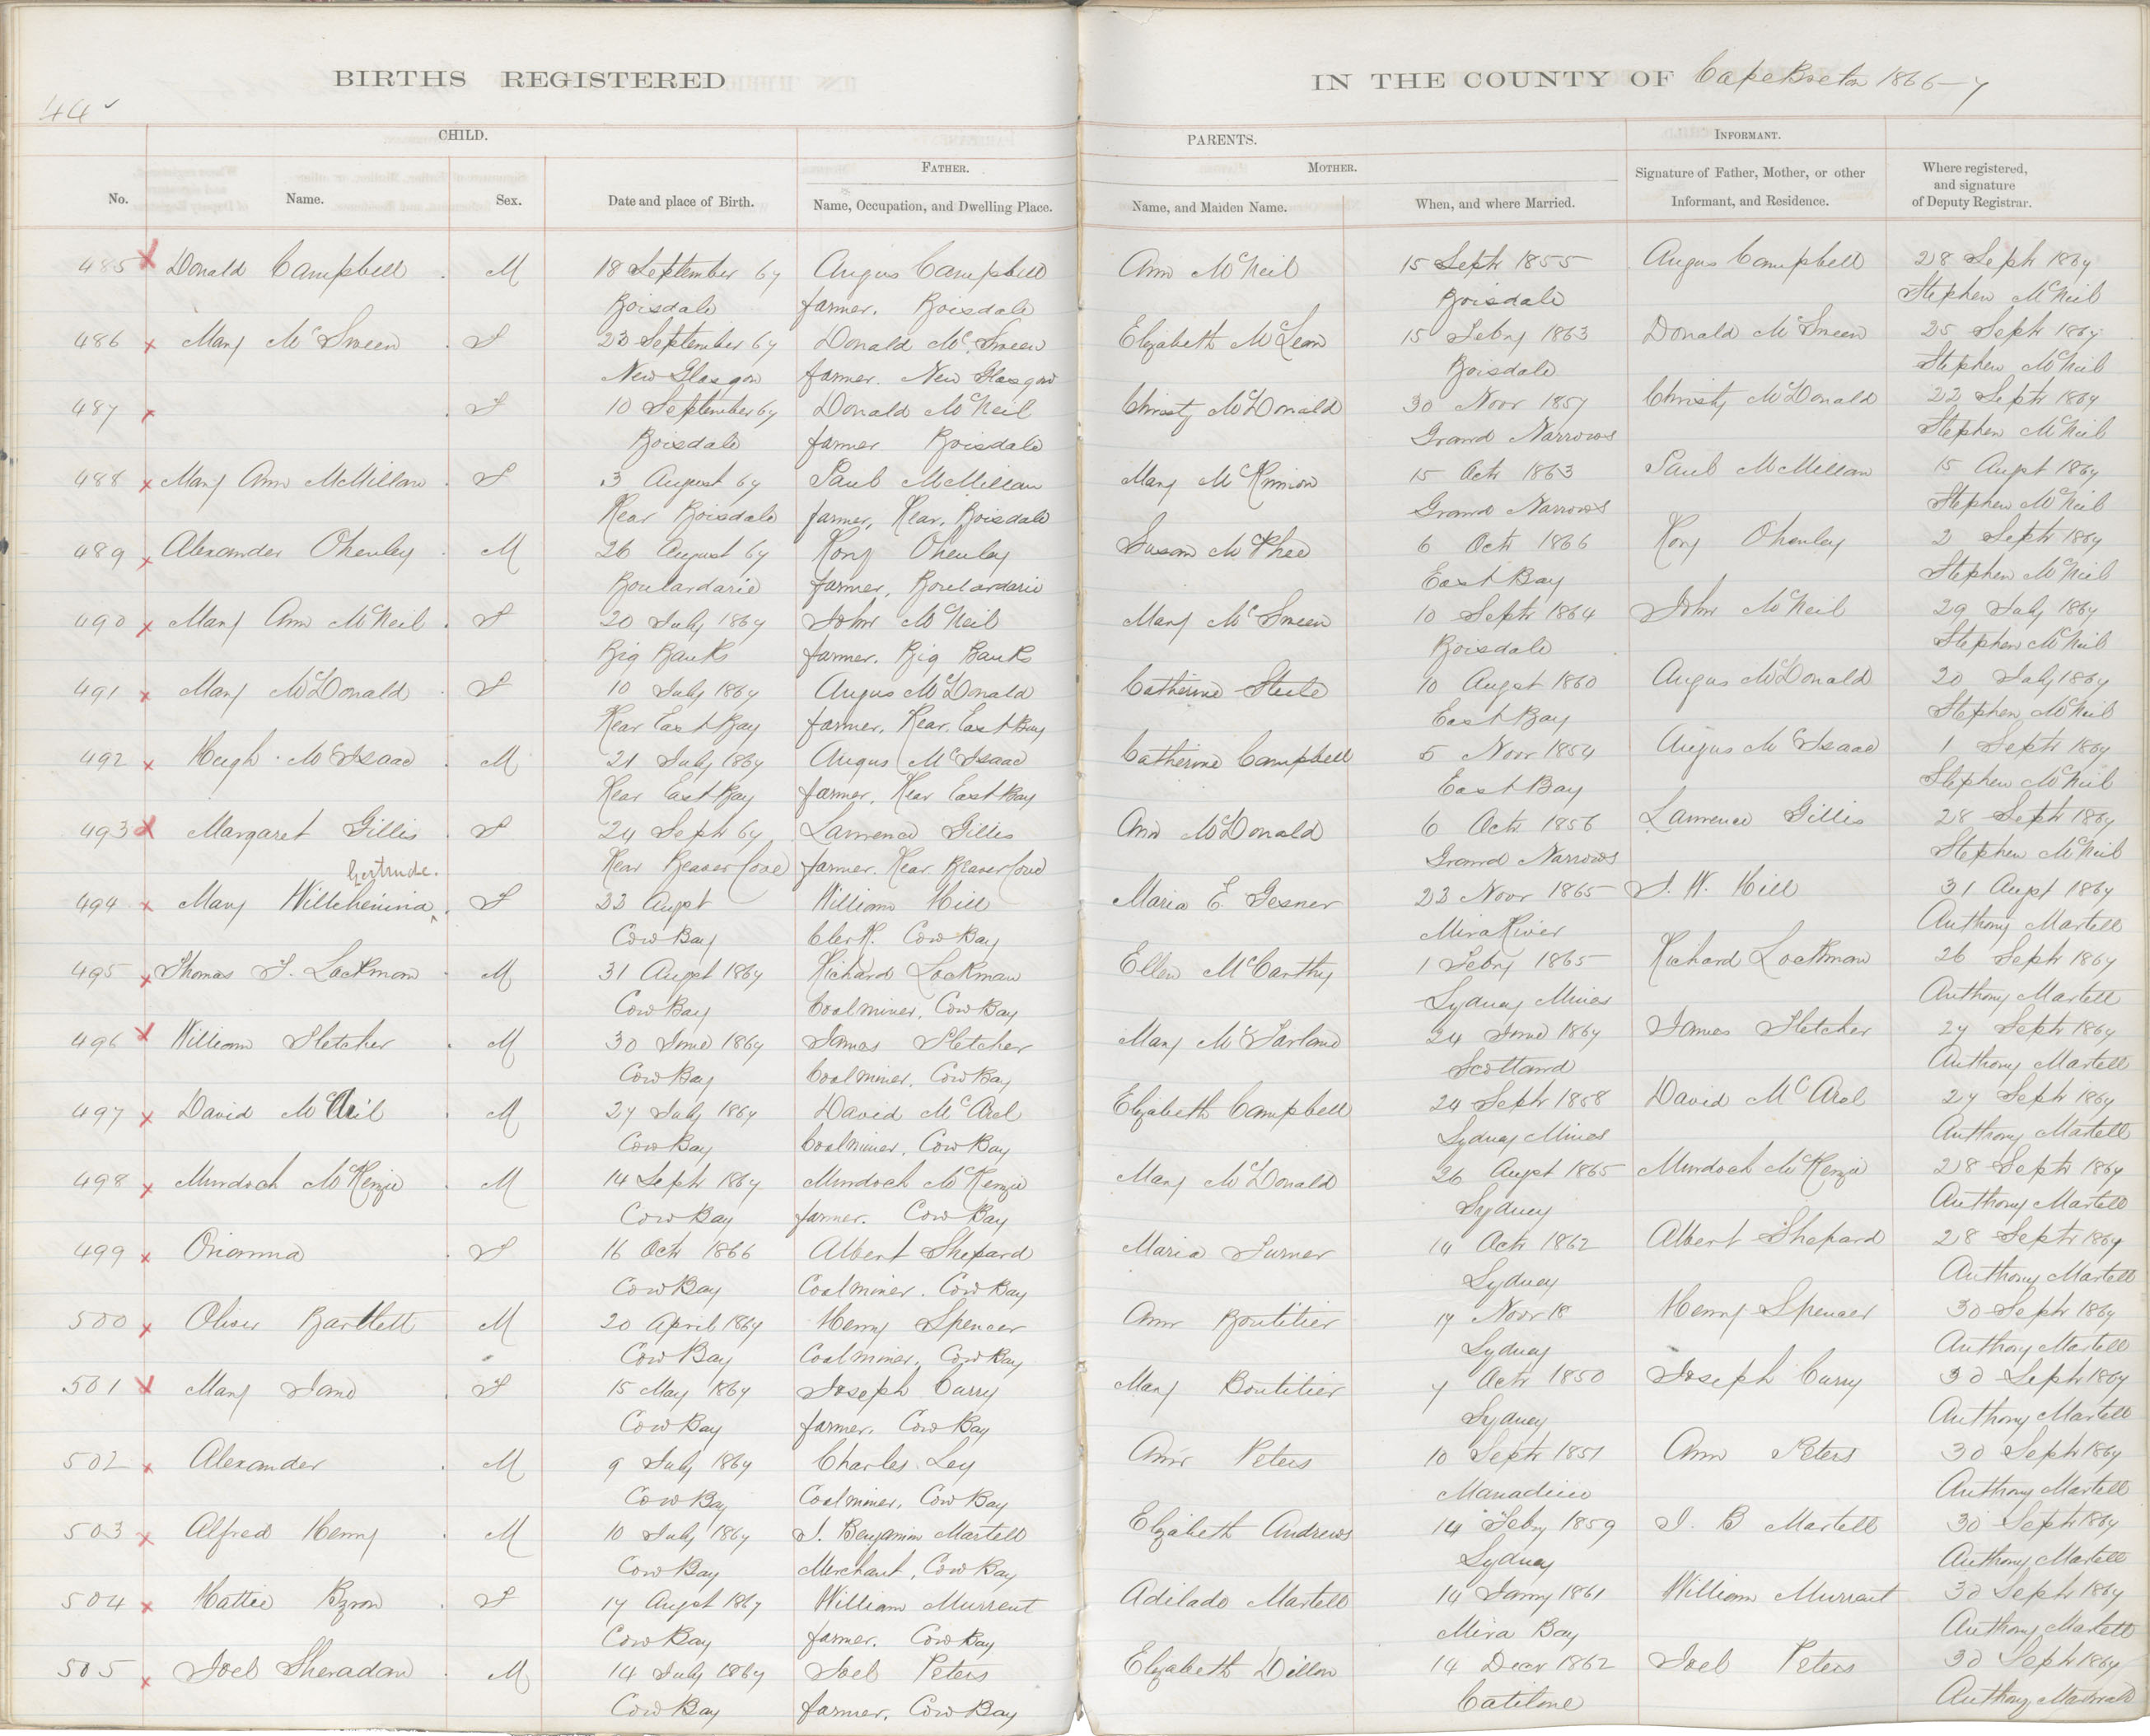 BIRTHS REGISTERED IN THE COUNTY OF Cape Breton 1866-7
44
CHILD. PARENTS. INFORMANT.
FATHER. MOTHER.
No. Name. Sex. Date and place of Birth. Name, Occupation, and Dwelling Place. Name, and Maiden Name. When, and where Married. Signature of Father, Mother, or other Informant, and Residence. Where registered, and signature of Deputy Registrar.
485 Donald Campbell M 18 September 67 Angus Campbell Ann McNeil 15 Septr 1855 Angus Campbell 28 Septr 1867
Boisdale farmer. Boisdale Boisdale Stephen McNeil
486 Mary McSween F 23 September 67 Donald McSween Elizabeth McLean 15 Feby 1863 Donald McSween 25 Septr 1867
New Glasgow farmer. New Glasgow Boisdale Stephen McNeil
487 F 10 September 67 Donald McNeil Christy McDonald 30 Novr 1857 Christy McDonald 22 Septr 1867
Boisdale farmer Boisdale Grand Narrows Stephen McNeil
488 Mary Ann McMillan F 3 August 67 Paul McMillan Mary McKinnon 15 Octr 1863 Paul McMillan 15 Augst 1867
Rear Boisdale farmer, Rear, Boisdale Grand Narrows Stephen McNeil
489 Alexander Ohenley M 26 August 67 Rory Ohenley Susan McPhee 6 Octr 1866 Rory Ohenley 2 Septr 1867
Boulardarie farmer, Boulardarie East Bay Stephen McNeil
490 Mary Ann McNeil F 20 July 1867 John McNeil Mary McSween 10 Septr 1864 John McNeil 29 July 1867
Big Banks farmer. Big Banks Boisdale Stephen McNeil
491 Mary McDonald F 10 July 1867 Angus McDonald Catherine Steele 10 Augst 1860 Angus McDonald 20 July 1867
Rear East Bay farmer, Rear, East Bay East Bay Stephen McNeil
492 Hugh McIsaac M 21 July 1867 Angus McIsaac Catherine Campbell 5 Novr 1854 Angus McIsaac 1 Septr 1867
Rear East Bay farmer, Rear East Bay East Bay Stephen McNeil
493 Margaret Gillis F 24 Septr 67 Lawrence Gillis Ann McDonald 6 Octr 1856 Lawrence Gillis 28 Septr 1867
Rear Beaver Cove farmer. Rear Beaver Cove Grand Narrows Stephen McNeil
Gertrude.
494 Mary Willehimina F 23 Augst William Hill Maria E. Gesner 23 Novr 1865 J. W. Hill 31 Augst 1867
Cow Bay Clerk. Cow Bay Mira River Anthony Martell
495 Thomas F. Lockman M 31 Augst 1867 Richard Lockman Ellen McCarthy 1 Feby 1865 Richard Lockman 26 Septr 1867
Cow Bay Coalminer, Cow Bay Sydney Mines Anthony Martell
496 William Fletcher M 30 June 1867 James Fletcher Mary McFarland 24 June 1867 James Fletcher 27 Septr 1867
Cow Bay Coalminer, Cow Bay Scotland Anthony Martell
497 David M 27 July 1867 David McArel Elizabeth Campbell 24 Septr 1858 David McArel 27 Septr 1867
Cow Bay Coalminer, Cow Bay Sydney Mines Anthony Martell
498 Murdoch McKenzie M 14 Septr 1867 Murdoch McKenzie Mary McDonald 26 Augst 1865 Murdoch McKenzie 28 Septr 1867
Cow Bay farmer. Cow Bay Sydney Anthony Martell
499 Orianna F 16 Octr 1866 Albert Shepard Maria Turner 14 Octr 1862 Albert Shepard 28 Septr 1867
Cow Bay Coalminer. Cow Bay Sydney Anthony Martell
500 Oliver Bartlett M 20 April 1867 Henry Spencer Ann Boutilier 17 Novr 18 Henry Spencer 30 Septr 1867
Cow Bay Coalminer. Cow Bay Sydney Anthony Martell
501 Mary Jane F 15 May 1867 Joseph Curry Mary Boutilier 7 Octr 1850 Joseph Curry 30 Septr 1867
Cow Bay farmer. Cow Bay Sydney Anthony Martell
502 Alexander M 9 July 1867 Charles Ley Ann Peters 10 Septr 1851 Ann Peters 30 Septr 1867
Cow Bay Coalminer, Cow Bay Manadieu Anthony Martell
503 Alfred Henry M 10 July 1867 J. Benjamin Martell Elizabeth Andrews 14 Feby 1859 J. B Martell 30 Septr 1867
Cow Bay Merchant, Cow Bay Sydney Anthony Martell
504 Hattie Byron F 17 Augst 1867 William Murrant Adilade Martell 14 Jany 1861 William Murrant 30 Septr 1867
Cow Bay farmer. Cow Bay Mira Bay Anthony Martell
505 Joel Sheradan M 14 July 1867 Joel Peters Elizabeth Dillon 14 Decr 1862 Joel Peters 30 Septr 1867
Cow Bay farmer, Cow Bay Catilone Anthony